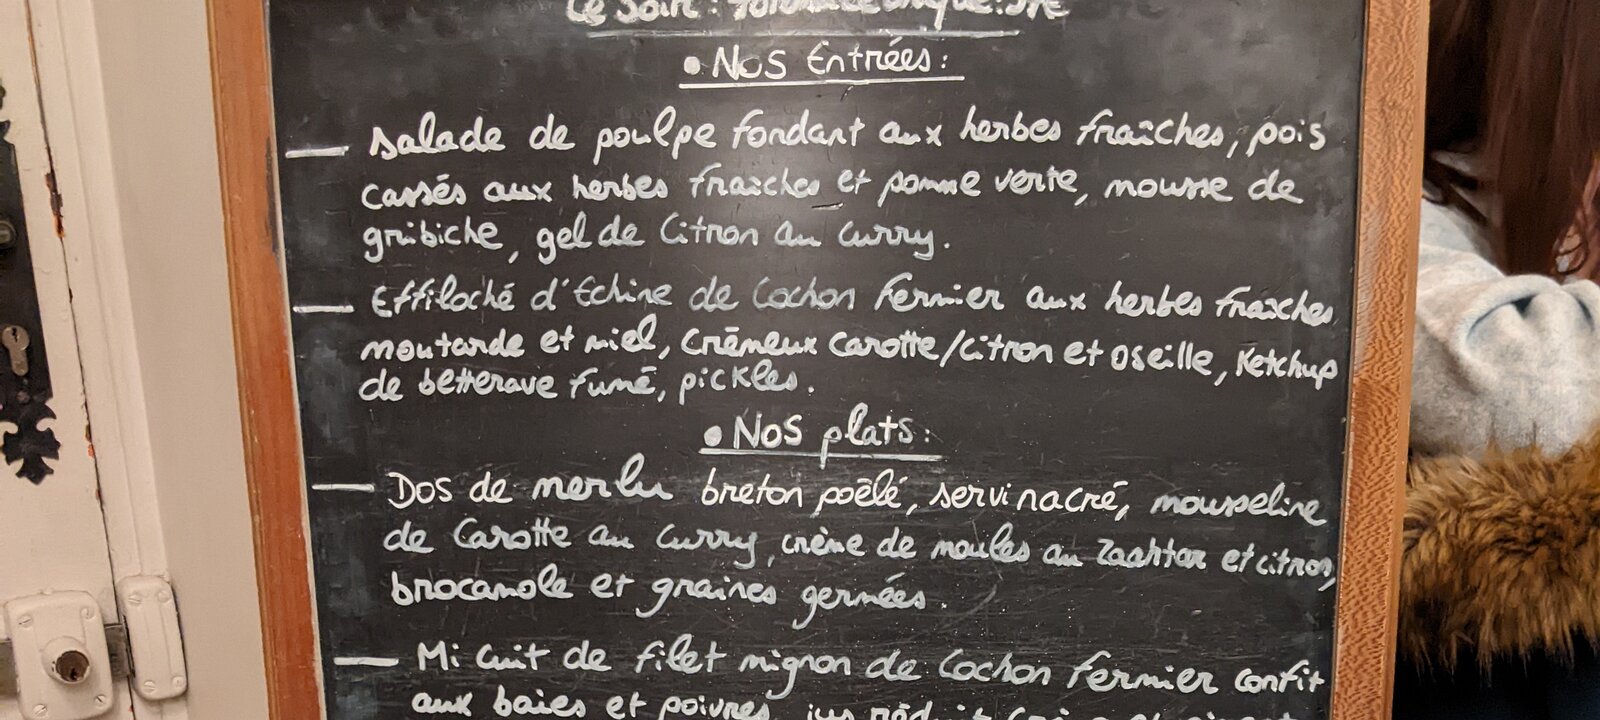 Le Soir : formule unique :
• Nos Entrées :
— salade de poulpe fondant aux herbes fraîches, pois
cassés aux herbes fraîches et pomme verte, mousse de
gribiche, gel de Citron au Curry.
— Effiloché d'Echine de Cochon Fermier aux herbes fraîches
moutarde et miel, Crémeux Carotte/Citron et Oseille, Ketchup
de betterave fumé, pickles.
• Nos plats :
— Dos de merlu breton poêlé, servi nacré, mousseline
de Carotte au Curry, crème de moules au Zaahtar et citron,
brocamole et graines germées.
— Mi Cuit de filet mignon de Cochon Fermier confit
aux baies et poivres, jus réduit